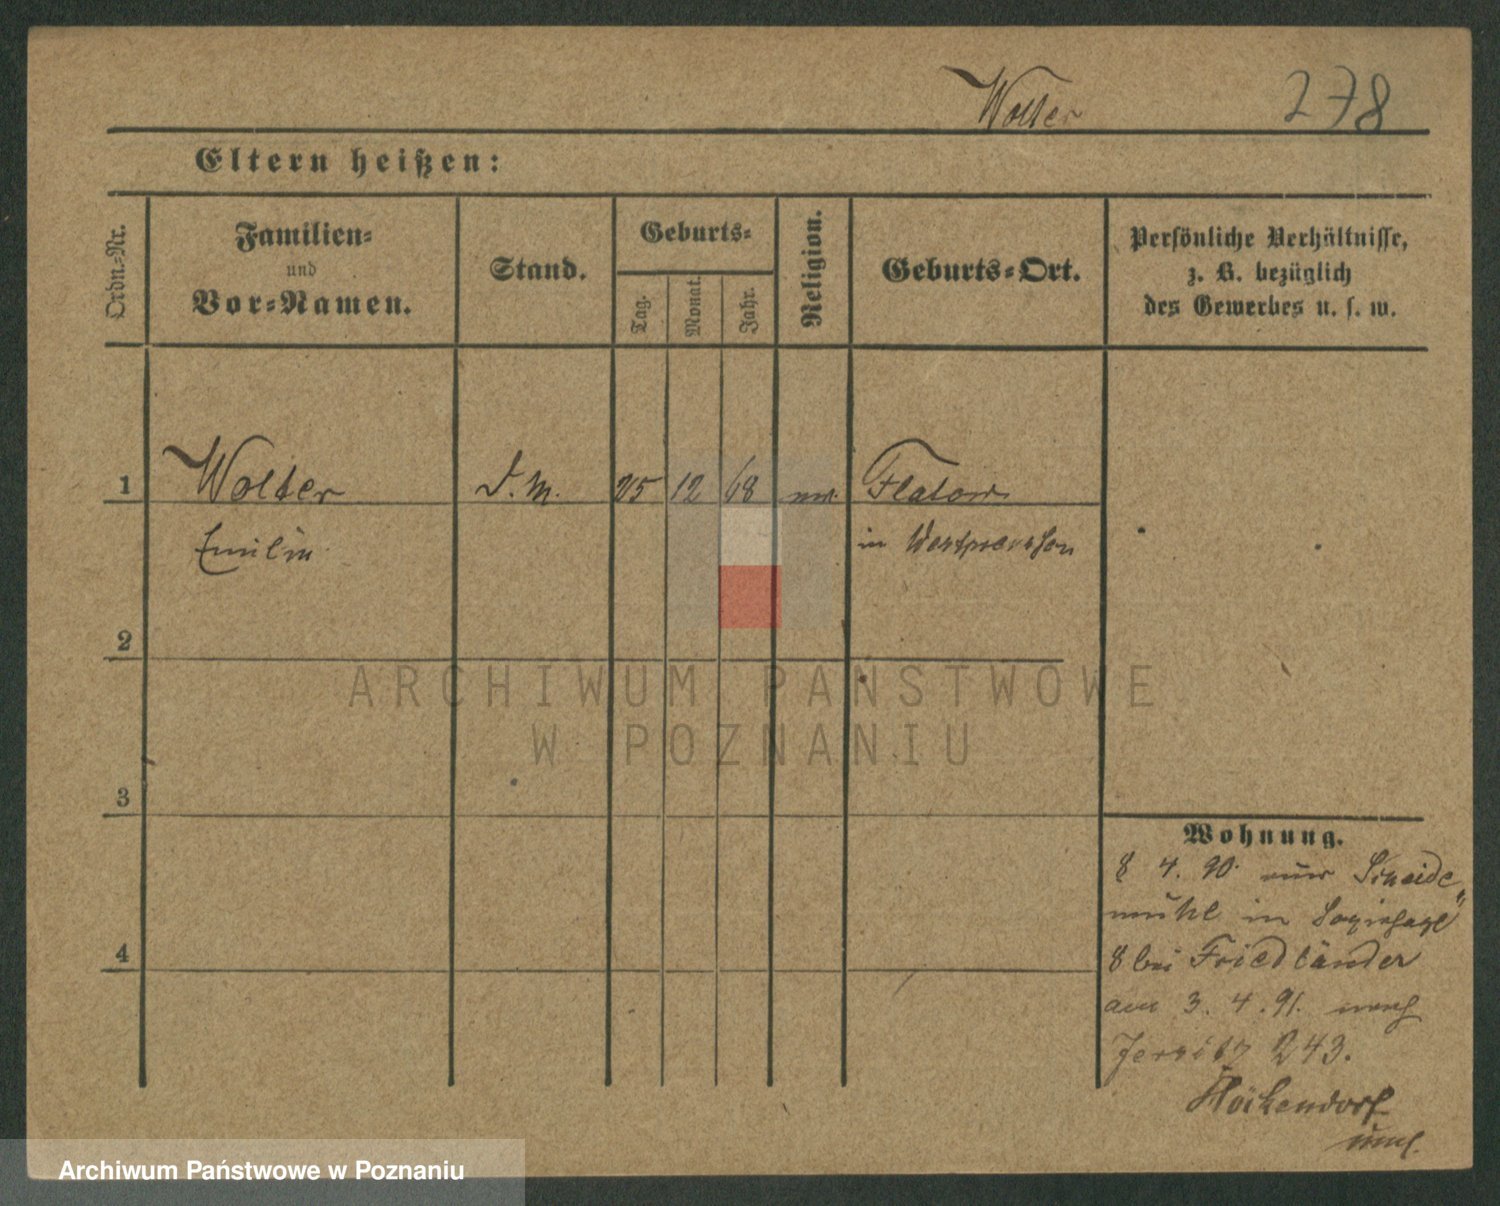 Wolter 278
Eltern heißen:
Ordn.-Nr.
Familien-
und
Vor-Namen.
Stand.
Geburts-
Tag.
Monat.
Jahr.
Religion.
Geburts-Ort.
Persönliche Verhältnisse,
z. B. bezüglich
des Gewerbes u. s. w.
1 Wolter D.M. 25 12 68 Flatow
Emilie in Westpreußen
2
ARCHIWUM PAŃSTWOWE
W POZNANIU
3
Wohnung.
8 4. 90. aus Schneide
mühl in
4
8 bei Friedländer
am 3. 4. 91. nach
Jersitz 243.
Archiwum Państwowe w Poznaniu